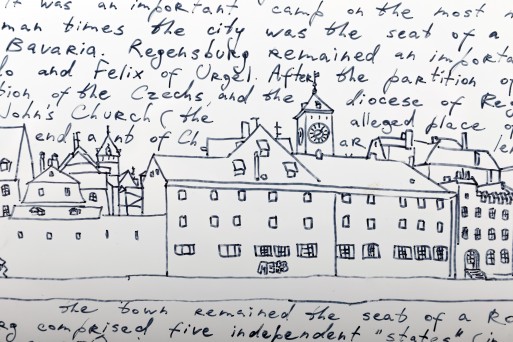 It was an important camp on the most n
man times the city was the seat of a
Bavaria. Regensburg remained an importa
lo and Felix of Urgel. After the partition of
tion of the Czechs, and the diocese of Reg
John's Church (the alleged place
end a nt of Ch
The town remained the seat of a Ro
rg comprised five independent "states" (in